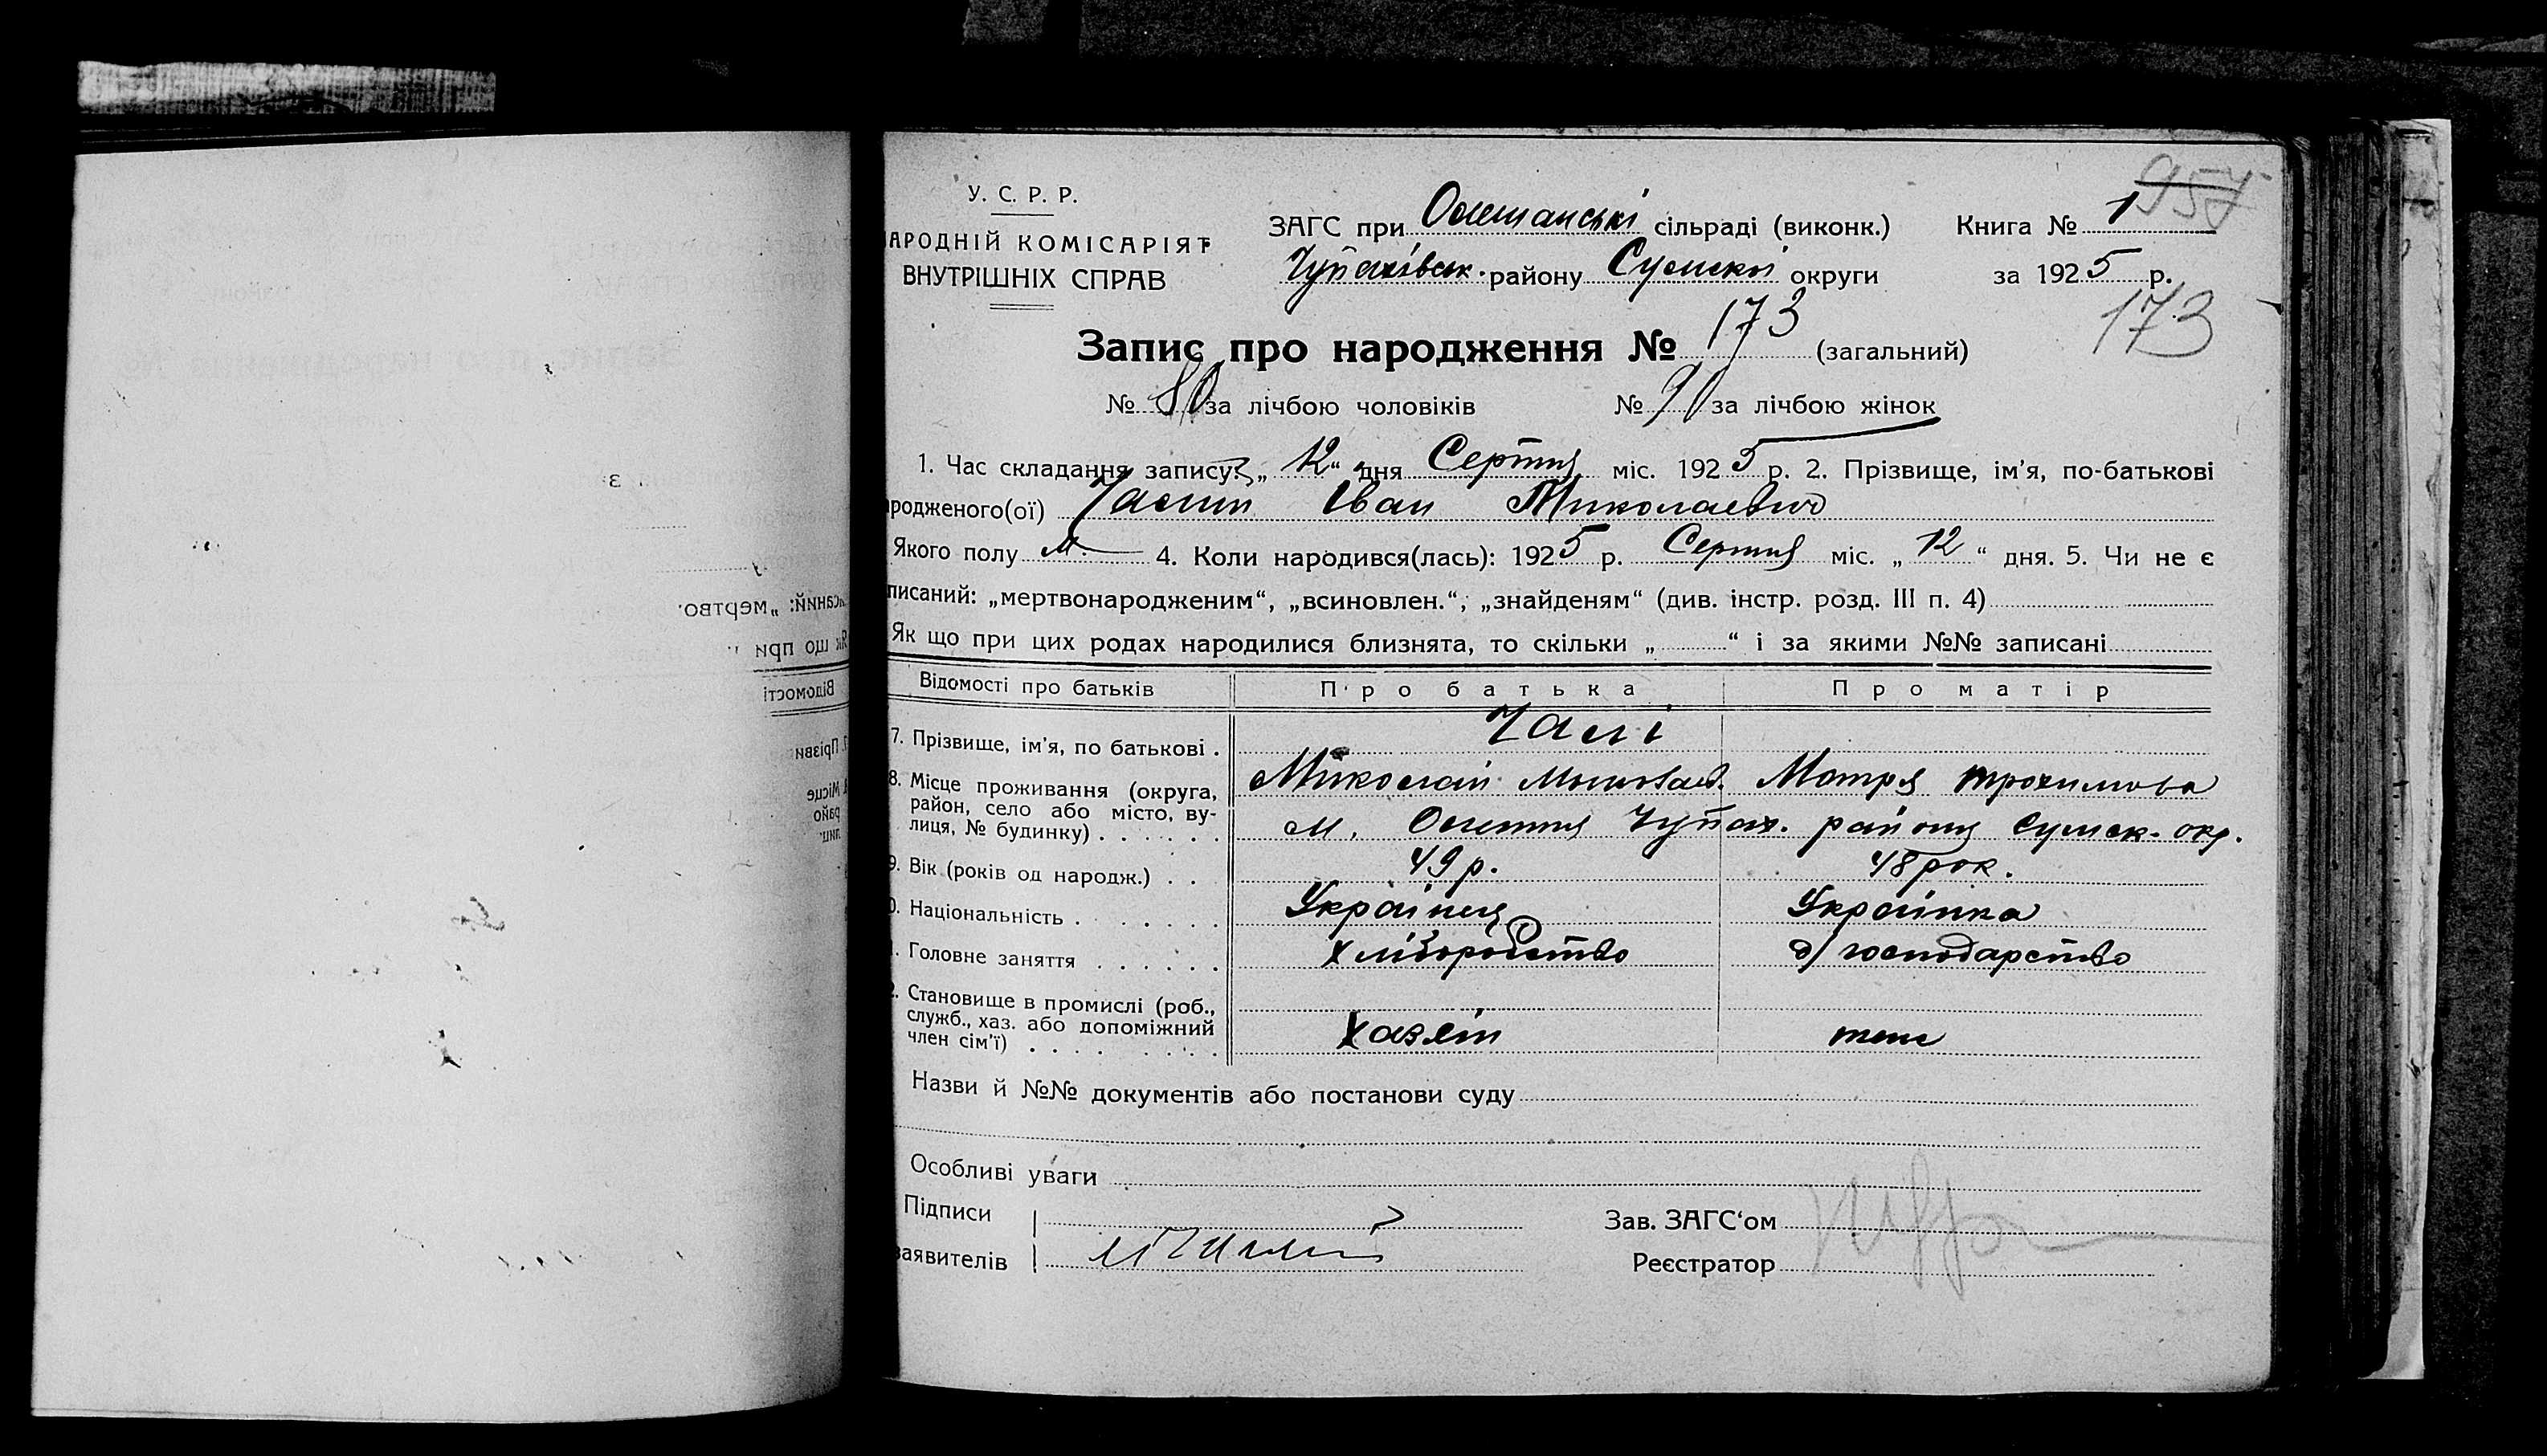 957
У. С. Р. Р.
АРОДНІЙ КОМІСАРІЯТ
ВНУТРІШНІХ СПРАВ
ЗАГС при Олешанські сільраді (виконк.) Книга № 1
Чупахівськ. району Сумської округи за 1925 р.
173
Запис про народження № 173 (загальний)
№ 80 за лічбою чоловіків № 90 за лічбою жінок
1. Час складання запису: „12“ дня Серпня міс. 1925 р. 2. Прізвище, ім'я, по-батькові
родженого(ої) Іван Миколаевич
Якого полу м. 4. Коли народився(лась): 1925 р. Серпня міс. „12“ дня. 5. Чи не є
писаний: „мертвонародженим“, „всиновлен.“, „знайденям“ (див. інстр. розд. III п. 4)
Як що при цих родах народилися близнята, то скільки „ “ і за якими №№ записані
Відомості про батьків Про батька Про матір
7. Прізвище, ім'я, по батькові .
8. Місце проживання (округа, район, село або місто, ву-лиця, № будинку) . . . . . .
Миколай Мотря Трохимова
м. Олешня Чупах. району Сумськ. окр.
9. Вік (років од народж.) . . 49 р. 48 рок.
0. Національність . . . . . Українця Українка
1. Головне заняття . . . . . . хліборобство д/господарство
2. Становище в промислі (роб.,
служб., хаз. або допоміжний
член сім'ї) . . . . . . . . Хазяін теж
Назви й №№ документів або постанови суду
Особливі уваги
Підписи
Зав. ЗАГС'ом
заявителів
Реєстратор